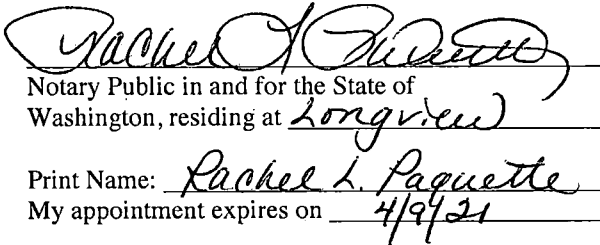 Rachel L Paquette
Notary Public in and for the State of
Washington, residing at Longview
Print Name: Rachel L. Paquette
My appointment expires on 4/9/21